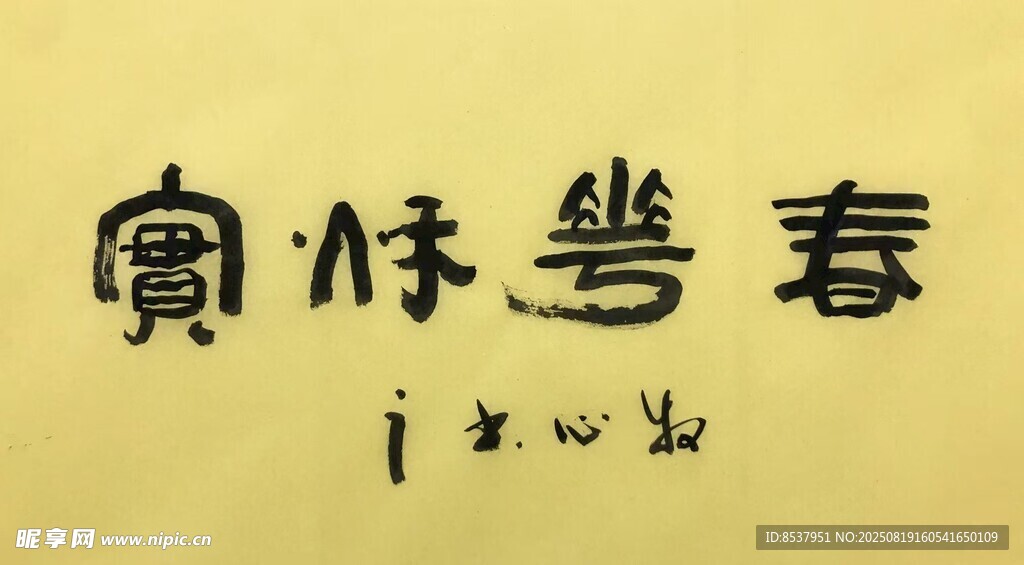 春華秋實
牧心书
昵享网 www.nipic.cn
ID:8537951 NO:20250819160541650109